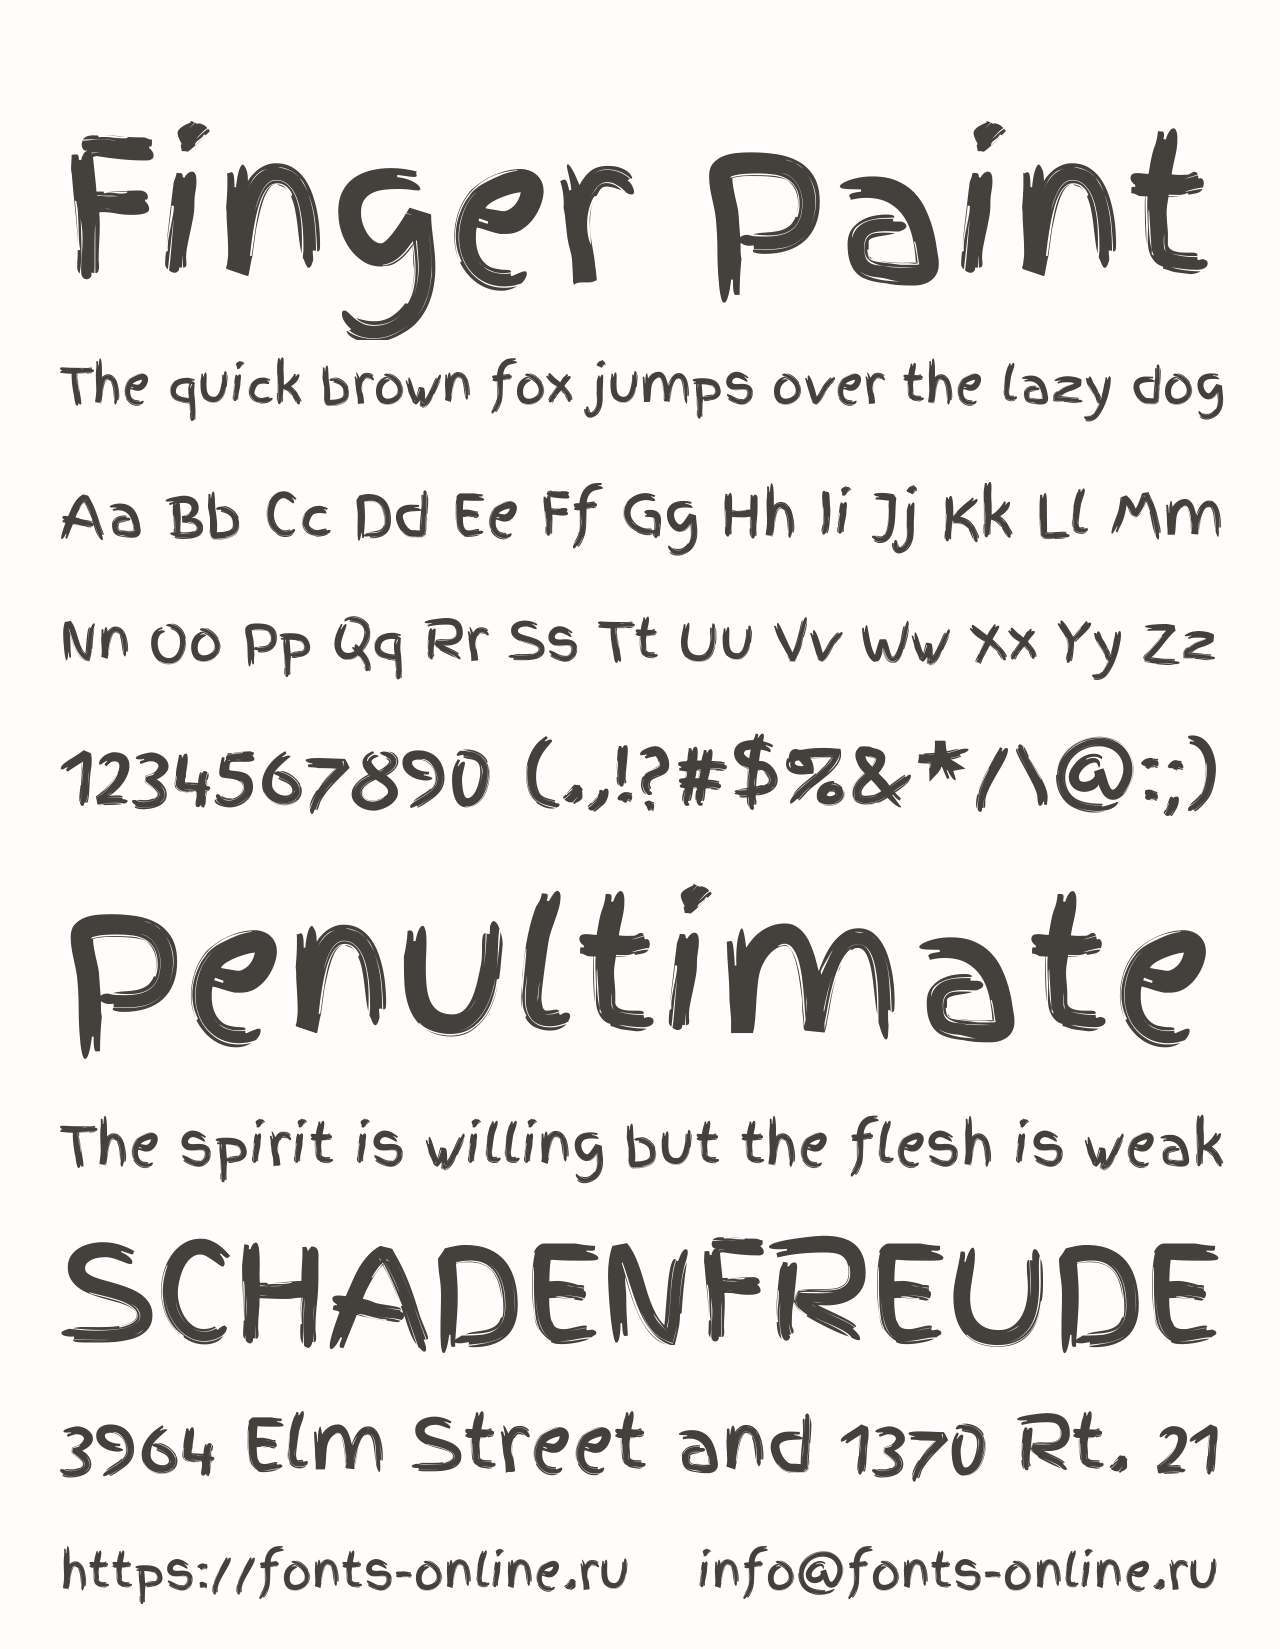 Finger Paint
The quick brown fox jumps over the lazy dog
Aa Bb Cc Dd Ee Ff Gg Hh Ii Jj Kk Ll Mm
Nn Oo Pp Qq Rr Ss Tt Uu Vv Ww Xx Yy Zz
1234567890 (.,!?#$%&*/\@:;)
Penultimate
The spirit is willing but the flesh is weak
SCHADENFREUDE
3964 Elm Street and 1370 Rt. 21
https://fonts-online.ru info@fonts-online.ru